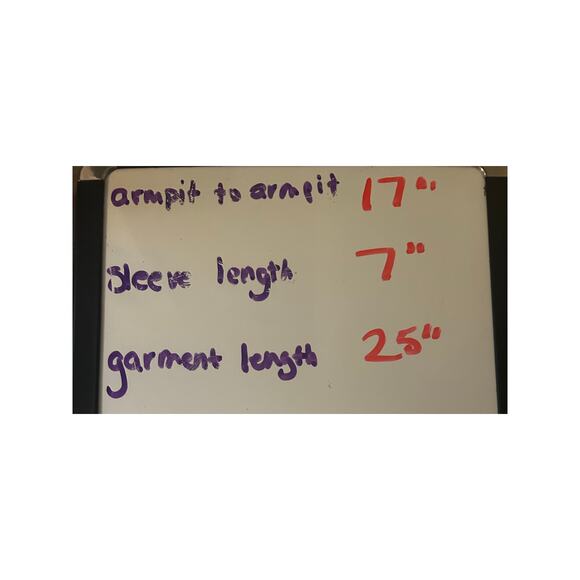 armpit to armpit 17"
sleeve length 7"
garment length 25"